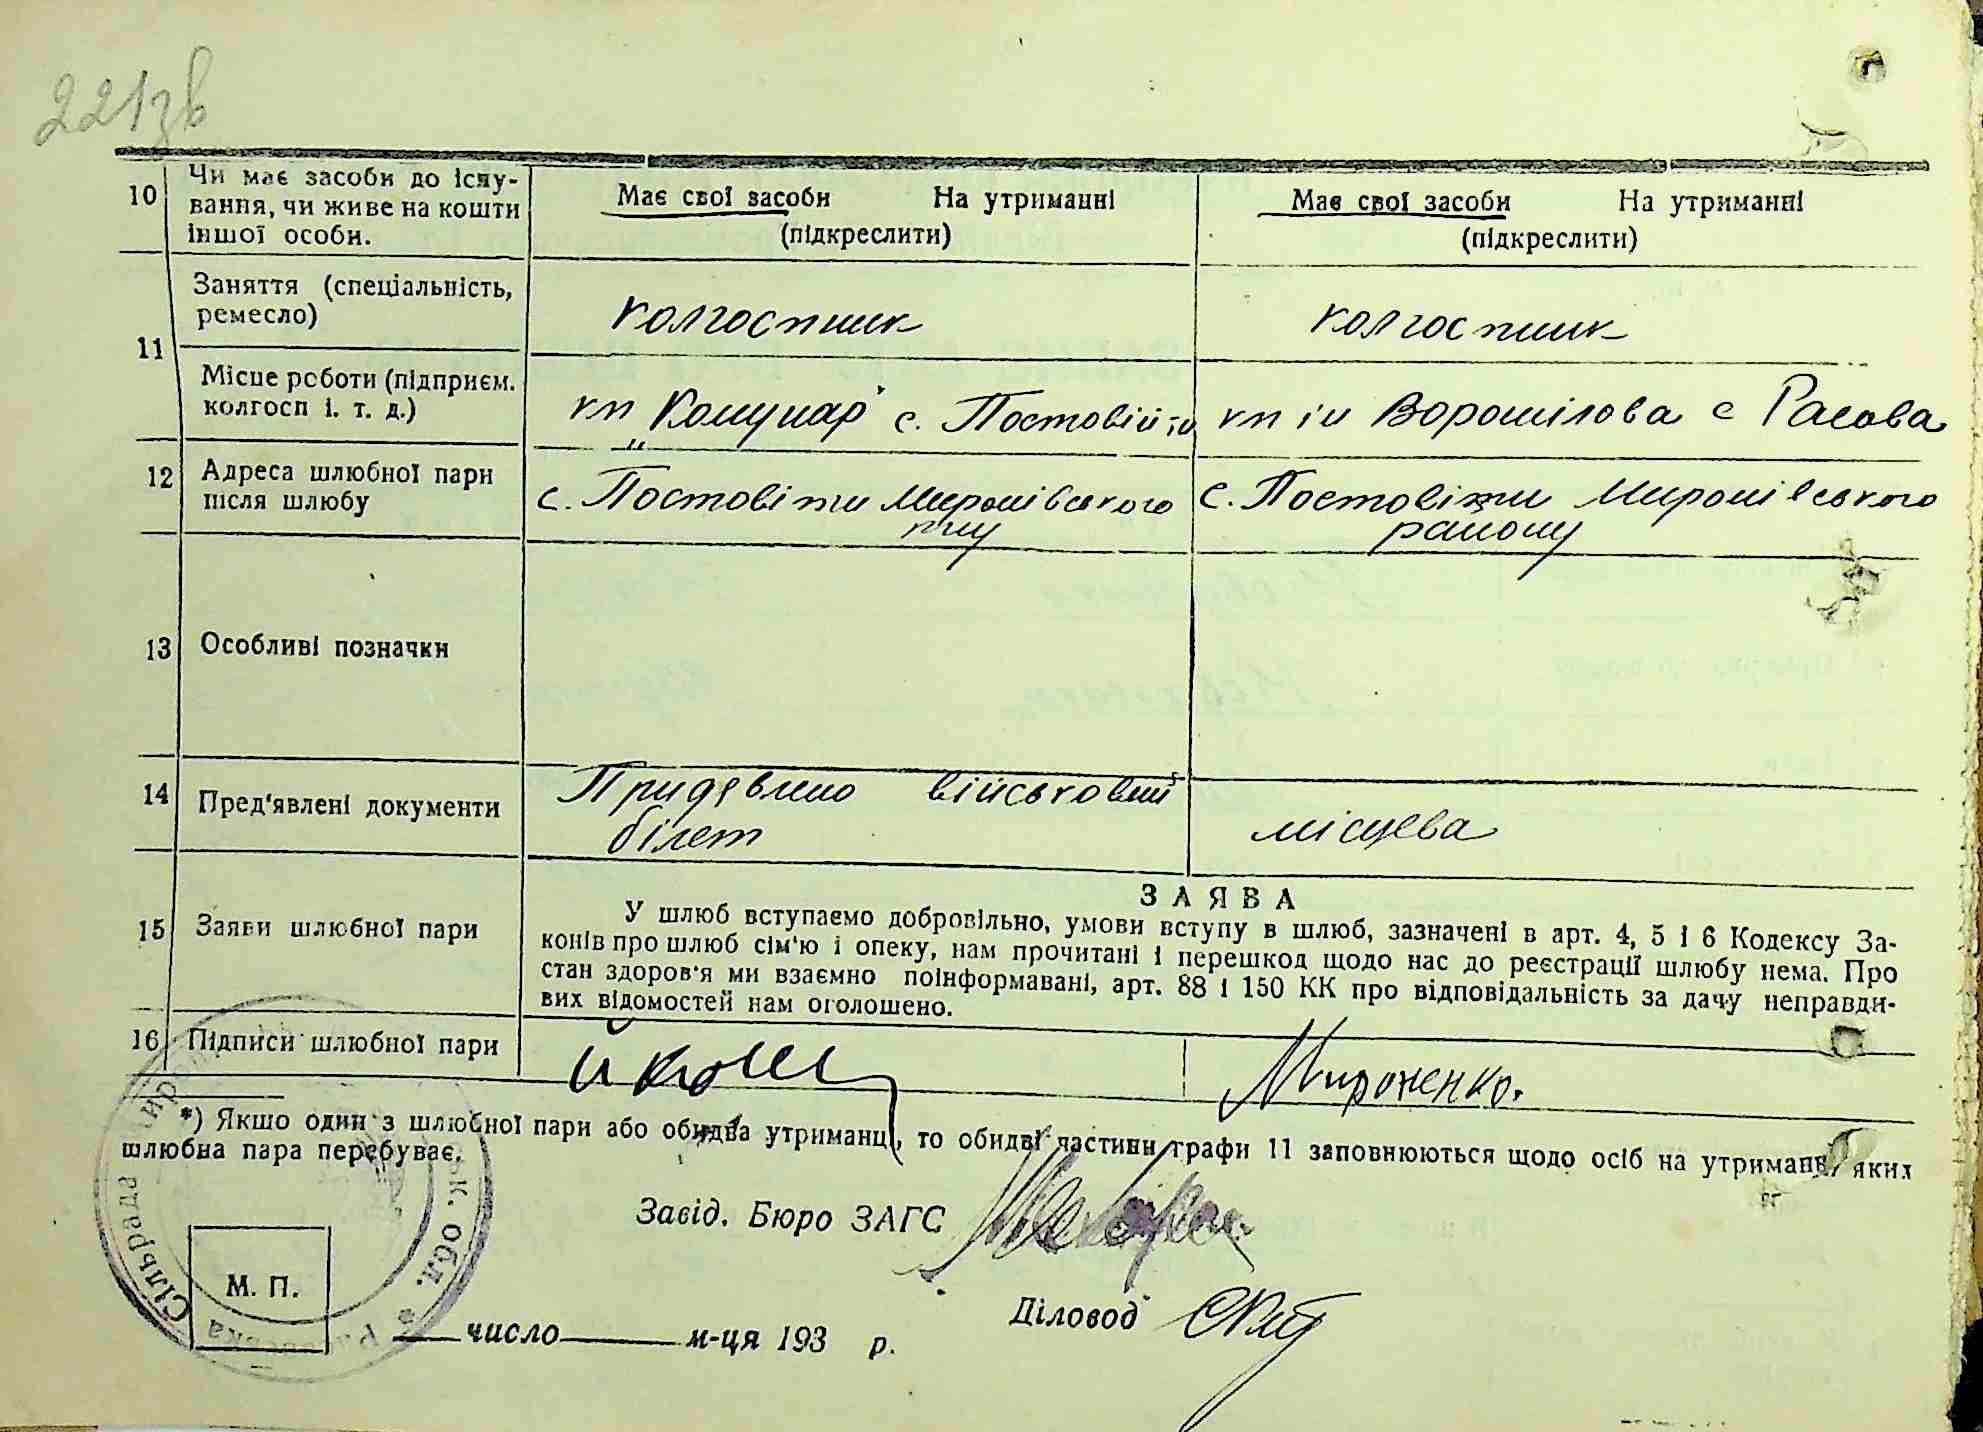 221зв
10 Чи має засоби до існу-
вання, чи живе на кошти
іншої особи.
Має свої засоби На утриманні
(підкреслити)
Має свої засоби На утриманні
(підкреслити)
11 Заняття (спеціальність,
ремесло)
колгоспник
колгоспник
Місце роботи (підприєм.
колгосп і. т. д.)
кп "Комунар" с. Постовійти
кп ім Ворошілова с Расова
12 Адреса шлюбної пари
після шлюбу
с. Постовіти Миронівського
рну
с. Постовіти Миронівського
району
13 Особливі позначки
14 Пред'явлені документи
Придявлено військовий
білет
місцева
15 Заяви шлюбної пари
ЗАЯВА
У шлюб вступаємо добровільно, умови вступу в шлюб, зазначені в арт. 4, 5 і 6 Кодексу За-
конів про шлюб сім'ю і опеку, нам прочитані і перешкод щодо нас до реєстрації шлюбу нема. Про
стан здоров'я ми взаємно поінформавані, арт. 88 і 150 КК про відповідальність за дачу неправди-
вих відомостей нам оголошено.
16 Підписи шлюбної пари
Мироненко.
*) Якшо один з шлюбної пари або обидва утриманці, то обидві частини графи 11 заповнюються щодо осіб на утриманні яких
шлюбна пара перебуває.
Завід. Бюро ЗАГС
Діловод
М. П.
число м-ця 193 р.
Сільрада
обл.